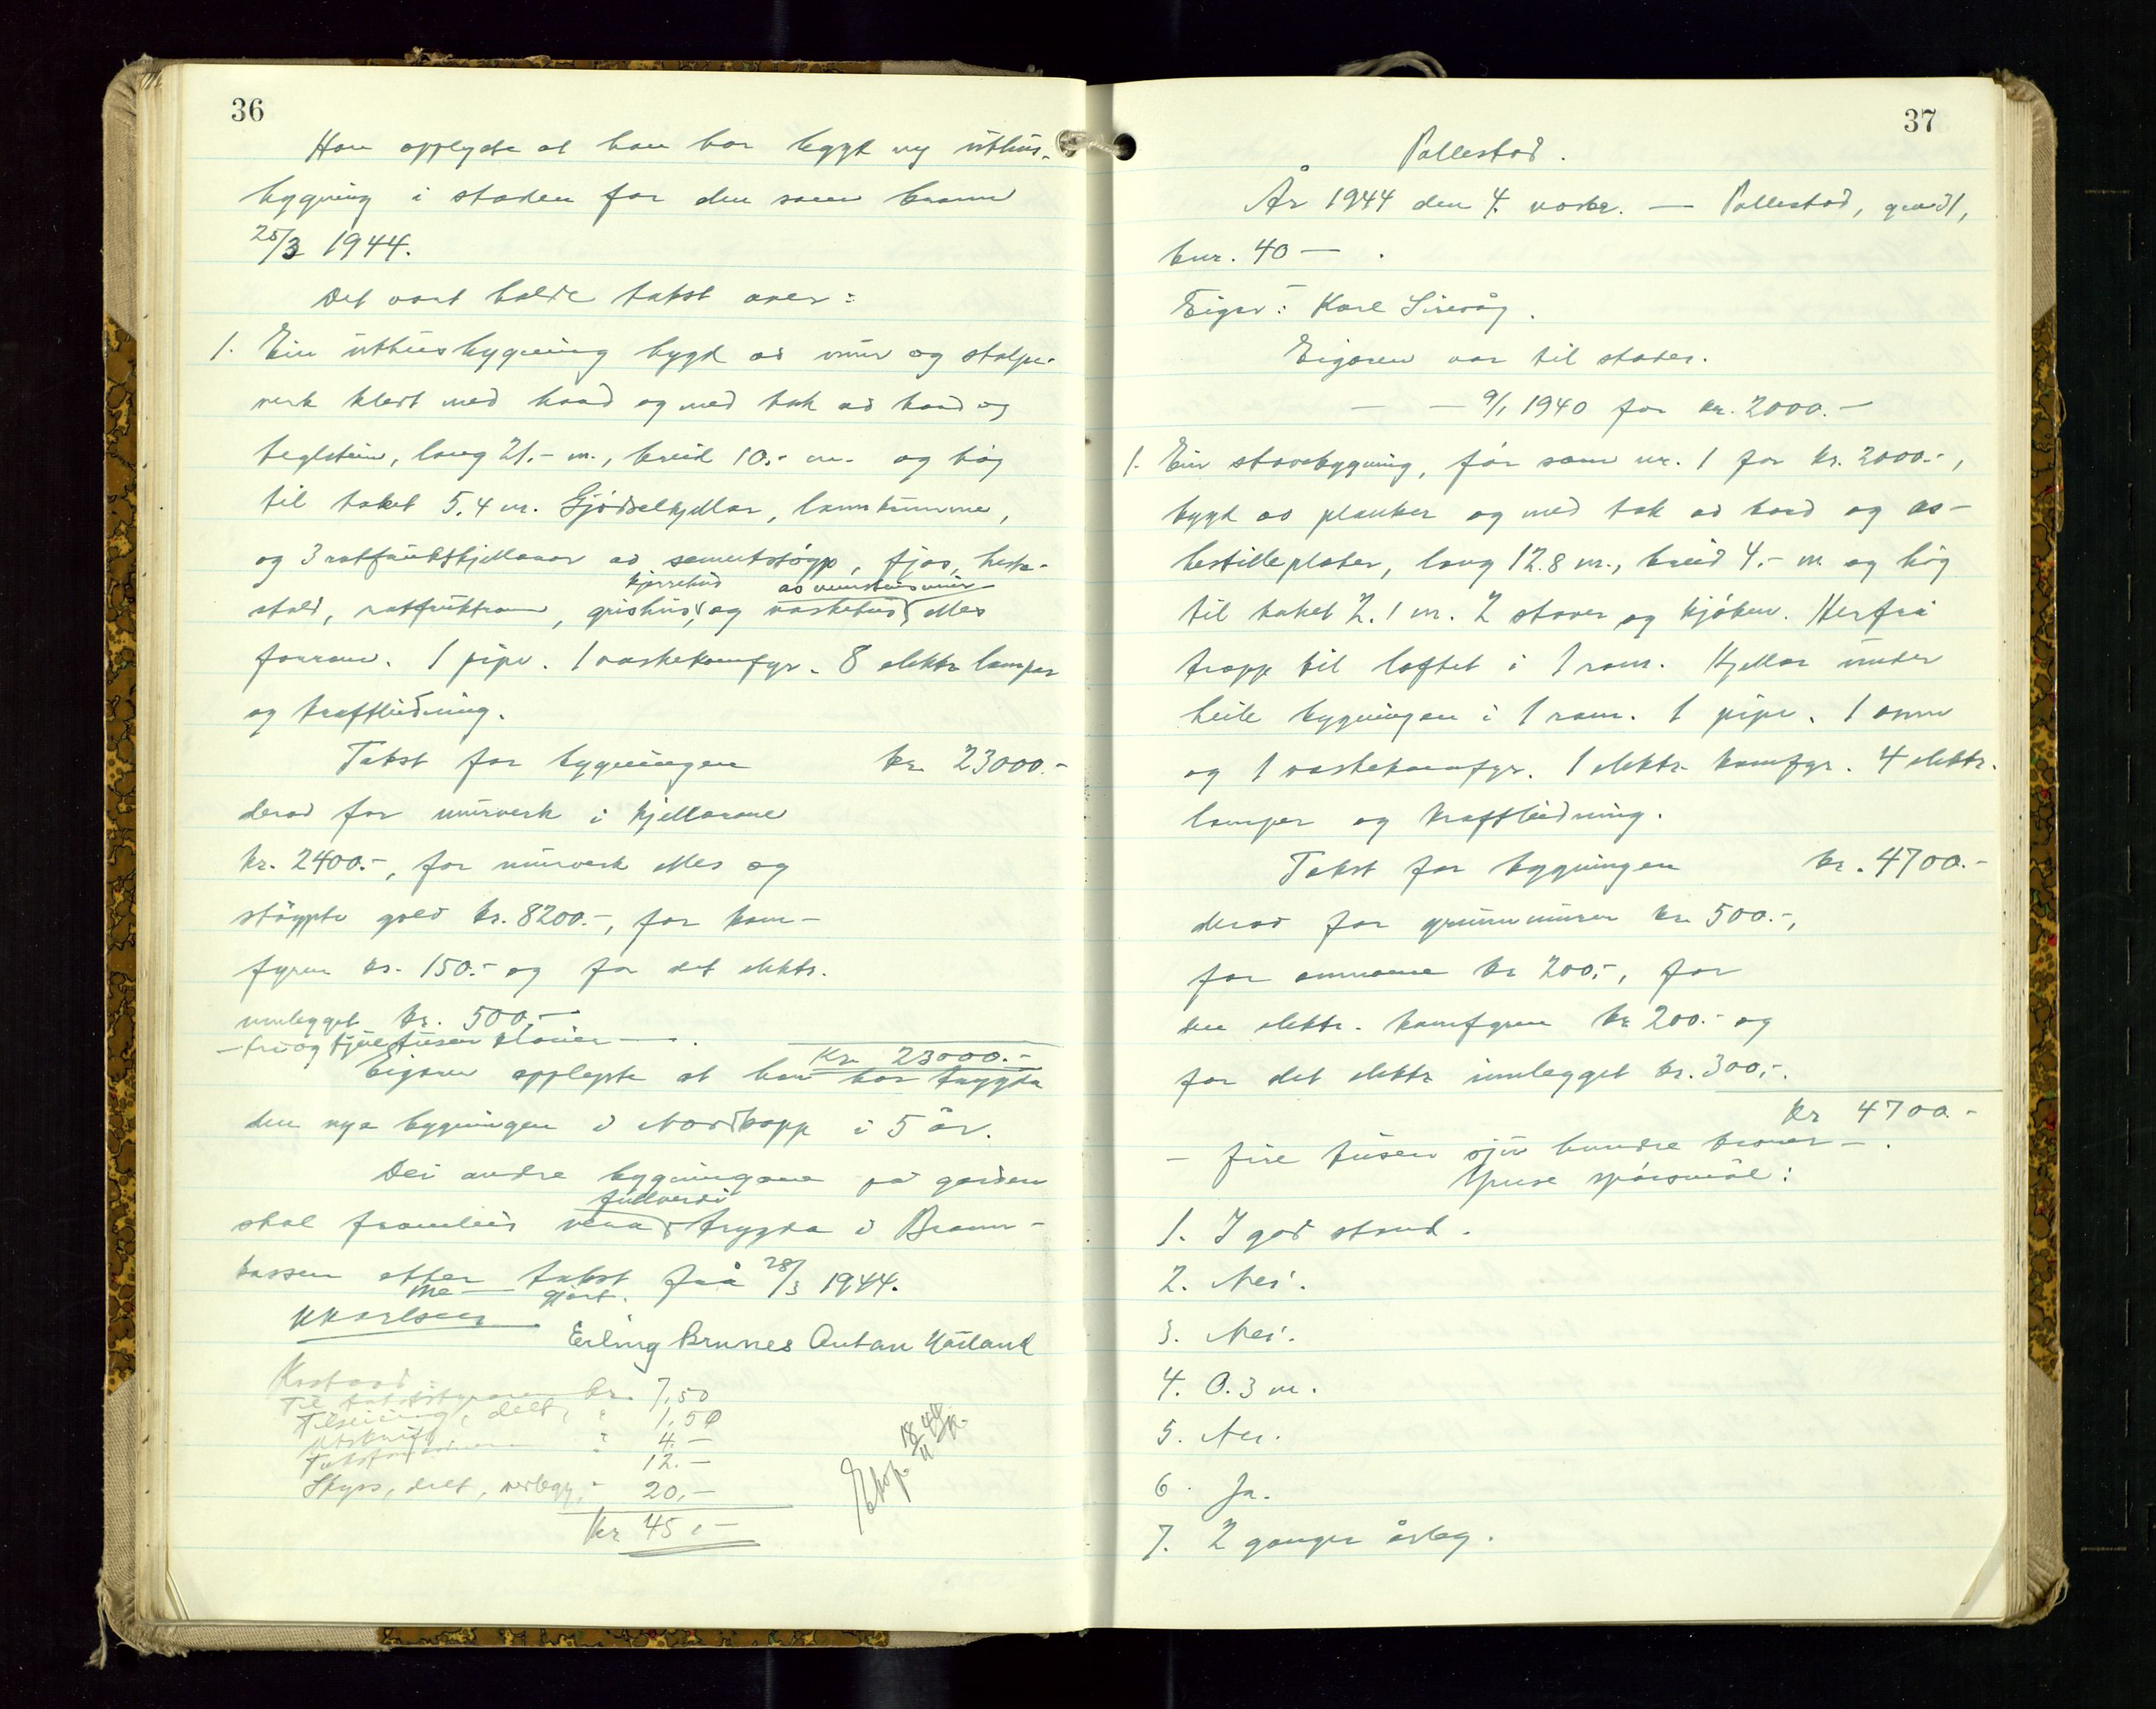 36
Han opplyste at han har bygt ny uthus-
bygning i staden for den som brann
25/3 1944.
Det vart halde takst over:
1. Ein uthusbygning bygd av mur og stolpe-
verk kledt med bord og med tak av bord og
teglstein, lang 21.- m., breid 10.- m. og høg
til taket 5.4 m. Gjødselkjellar, landkumme,
og 3 rotfruktkjellarar av sementstøyp, fjøs, heste-
kjørrehus av murstensmur
stald, rotfruktrom, grishus, og vaskehus elles
forrom. 1 pipe. 1 vaskekomfyr. 8 elektr. lamper
og kraftleidning.
Takst for bygningen kr. 23000.-
derav for murverk i kjellarane
kr. 2400.-, for murverk elles og
støypte golv kr. 8200.-, for kom-
fyren kr. 150.- og for det elektr.
innlegget kr. 500.-
Kr. 23000.-
- tri og tjue tusen kroner - .
Eigaren opplyste at han har trygda
den nye bygningen i Nordkapp i 5 år.
Dei andre bygningane på garden
fullverdi
skal framleis vera trygda i Brann-
kassen etter takst frå 28/3 1944.
Me - gjort.
K Karlsen
Erling Brunes Anton Høiland
Kostnad:
Til takststyraren kr. 7,50
Tilseiing, delt, " 1,50
Utskrift " 4.-
Takstmennene 12.-
Skyss, delt, vedlegg, - 20,-
Kr 45,-
Ekop. 18/11 44
37
Pollestad.
År 1944 den 4. novbr. — Pollestad, gnr. 31,
bnr. 40 — .
Eigar: Karl Sirevåg.
Eigaren var til stades.
— — 9/1 1940 for kr. 2000.-
1. Ein stovebygning, før som nr. 1 for kr. 2000.-,
bygt av planker og med tak av bord og as-
bestilleplater, lang 12.8 m., breid 4.- m og høg
til taket 2.1 m. 2 stover og kjøken. Herfrå
trapp til loftet i 1 rom. Kjellar under
heile bygningen i 1 rom. 1 pipe. 1 omn
og 1 vaskekomfyr. 1 elektr. komfyr. 4 elektr.
lamper og kraftleidning.
Takst for bygningen kr. 4700.-
derav for grunnmuren kr. 500.-,
for omnane kr 200,-, for
den elektr. komfyren kr 200.- og
for det elektr innlegget kr. 300,-.
kr 4700.-
- fire tusen sju hundre kroner - .
Ymse spørsmål:
1. I god stand.
2. Nei.
3. Nei.
4. 0.3 m.
5. Nei.
6. Ja.
7. 2 gonger årleg.